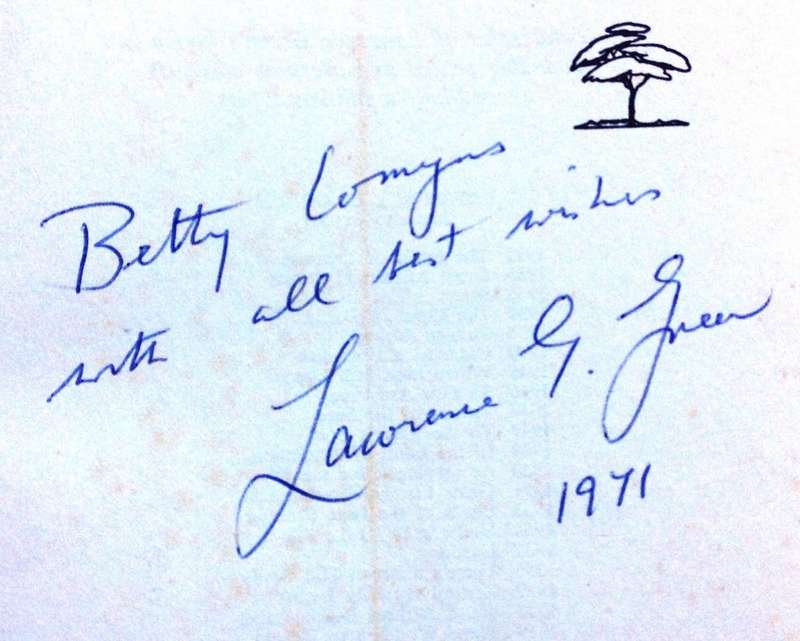 Betty Comyns
with all best wishes
Lawrence G. Green
1971